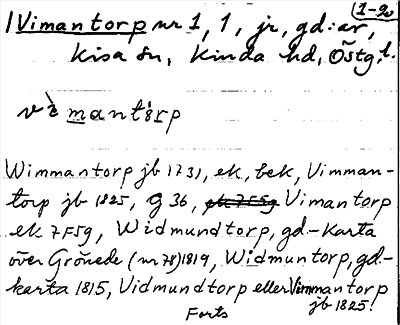 (1-2)
Vimantorp nr 1, 1, jr, gd:ar,
Kisa sn, Kinda hd, Östg.l.
vìmantårp
Wimmantorp jb 1731, ek, bek, Vimman-
torp jb 1825, G 36, Vimantorp
ek 7F5g, Widmundtorp, gd-karta
över Grönede (nr 78) 1819, Widmuntorp, gd-
karta 1815, Vidmundtorp eller Vimmantorp
jb 1825.
Forts